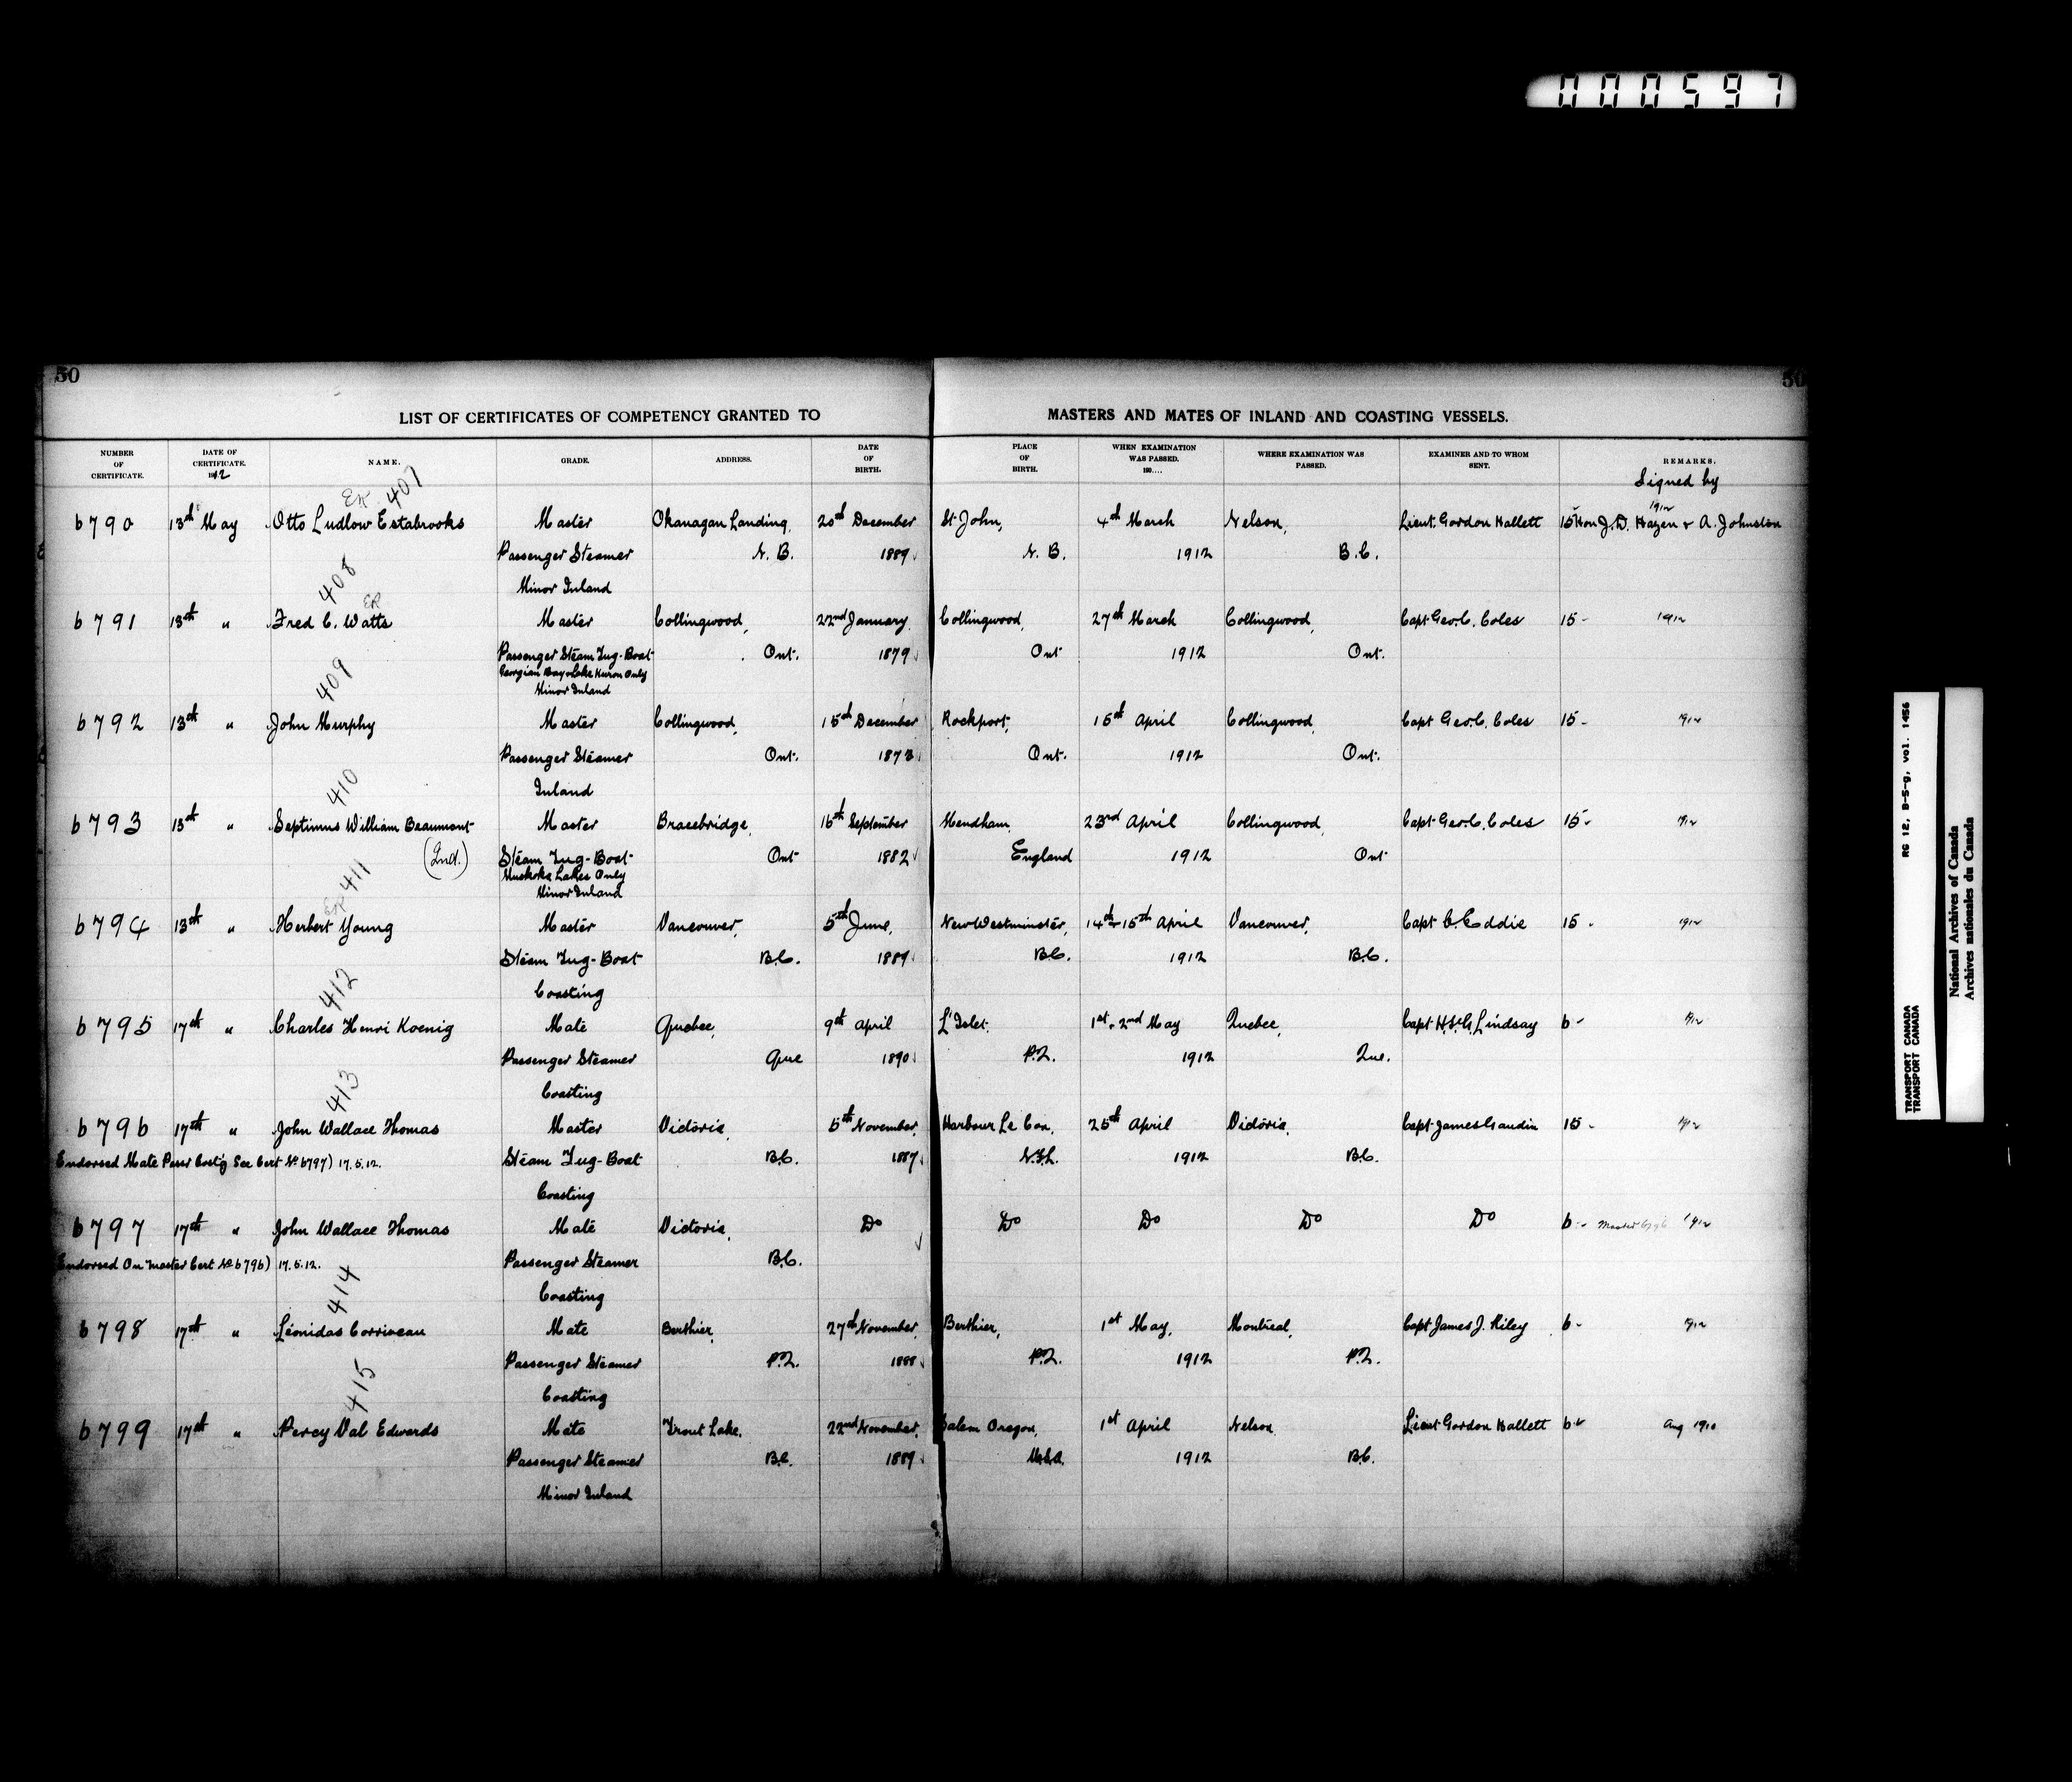 000597
50
50
LIST OF CERTIFICATES OF COMPETENCY GRANTED TO
MASTERS AND MATES OF INLAND AND COASTING VESSELS.
NUMBER OF CERTIFICATE.
DATE OF CERTIFICATE. 1912
NAME.
GRADE.
ADDRESS.
DATE OF BIRTH.
PLACE OF BIRTH.
WHEN EXAMINATION WAS PASSED. 190....
WHERE EXAMINATION WAS PASSED.
EXAMINER AND TO WHOM SENT.
REMARKS.
Signed by
ER 407
6790 13th May Otto Ludlow Estabrooks Master Okanagan Landing, 20th December St John, 4th March Nelson, Lieut. Gordon Hallett 15 Hon J. D. Hazen & A. Johnston 1912
Passenger Steamer N. B. 1889 N. B. 1912 B.C.
Minor Inland
408 ER
6791 13th " Fred C. Watts Master Collingwood, 22nd January Collingwood, 27th March Collingwood, Capt Geo. C. Coles 15- 1912
Passenger Steam Tug-Boat Ont. 1879 Ont 1912 Ont.
Georgian Bay & Lake Huron Only
Minor Inland
409
6792 13th " John Murphy Master Collingwood, 15th December Rockport, 15th April Collingwood, Capt Geo. C. Coles 15- 1912
Passenger Steamer Ont. 1873 Ont. 1912 Ont.
Inland
410
6793 13th " Septimus William Beaumont Master Bracebridge, 16th September Mendham, 23rd April Collingwood, Capt Geo. C. Coles 15- 1912
(Ind.) Steam Tug-Boat Ont 1882 England 1912 Ont
Muskoka Lakes Only
Minor Inland
411
6794 13th " Herbert Young Master Vancouver, 5th June, New Westminster, 14th & 15th April Vancouver, Capt C. Eddie 15- 1912
Steam Tug-Boat B.C. 1889 B.C. 1912 B.C.
Coasting
412
6795 17th " Charles Henri Koenig Mate Quebec, 9th April L'Islet. 1st & 2nd May Quebec, Capt H. St G. Lindsay 6- 1912
Passenger Steamer Que 1890 P.Q. 1912 Que.
Coasting
413
6796 17th " John Wallace Thomas Master Victoria, 5th November, Harbour Le Cou, 25th April Victoria, Capt James Gaudin 15- 1912
Endorsed Mate Passr Coast'g See Cert No 6797) 17.5.12. Steam Tug-Boat B.C. 1887 N.F.L. 1912 B.C.
Coasting
6797 17th " John Wallace Thomas Mate Victoria, Do Do Do Do Do 6- Master 6796 1912
Endorsed On Master Cert No 6796) 17.5.12. Passenger Steamer B.C.
Coasting
414
6798 17th " Léonidas Corriveau Mate Berthier, 27th November, Berthier, 1st May, Montreal, Capt James J. Riley 6- 1912
Passenger Steamer P.Q. 1888 P.Q. 1912 P.Q.
Coasting
415
6799 17th " Percy Val Edwards Mate Trout Lake, 22nd November, Salem Oregon, 1st April Nelson, Lieut Gordon Hallett 6- Aug 1910
Passenger Steamer B.C. 1889 U.S.A. 1912 B.C.
Minor Inland
RG 12, B-5-g, vol. 1456
TRANSPORT CANADA
TRANSPORT CANADA
National Archives of Canada
Archives nationales du Canada